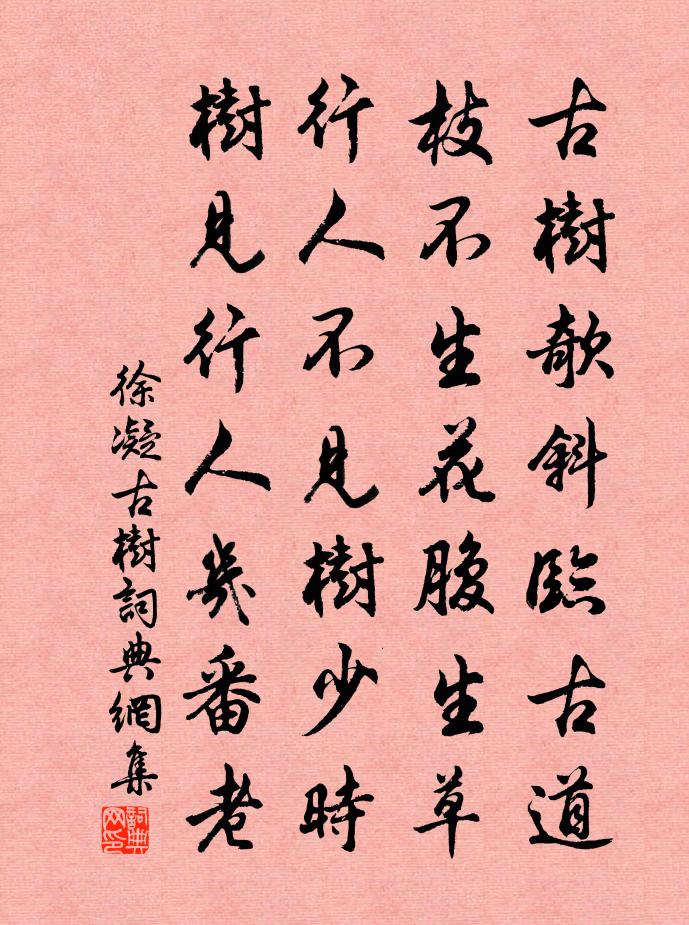 古樹欹斜臨古道
枝不生花腹生草
行人不見樹少時
樹見行人幾番老
徐凝古樹詞典網集
詞典网印